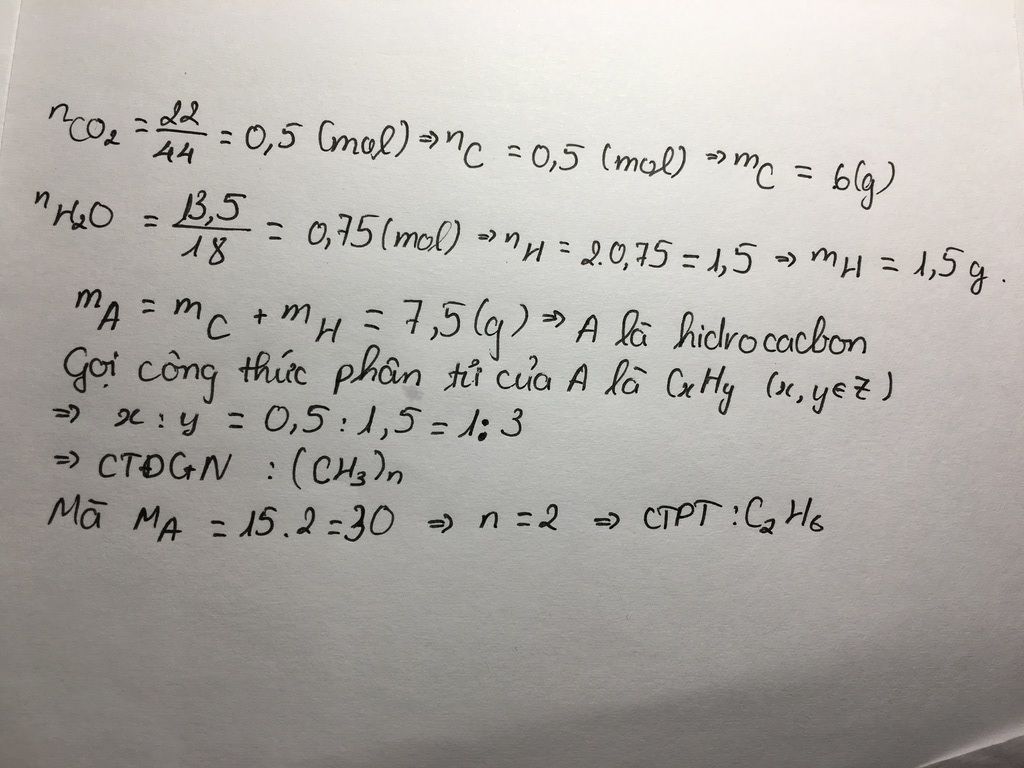 nCO2 = 22/44 = 0,5 (mol) ⇒ nC = 0,5 (mol) ⇒ mC = 6(g)
nH2O = 13,5/18 = 0,75 (mol) ⇒ nH = 2.0,75 = 1,5 ⇒ mH = 1,5g.
mA = mC + mH = 7,5(g) ⇒ A là hidrocacbon
Gọi công thức phân tử của A là CxHy (x, y ∈ Z)
⇒ x : y = 0,5 : 1,5 = 1 : 3
⇒ CTĐGN : (CH3)n
Mà MA = 15.2 = 30 ⇒ n = 2 ⇒ CTPT : C2H6